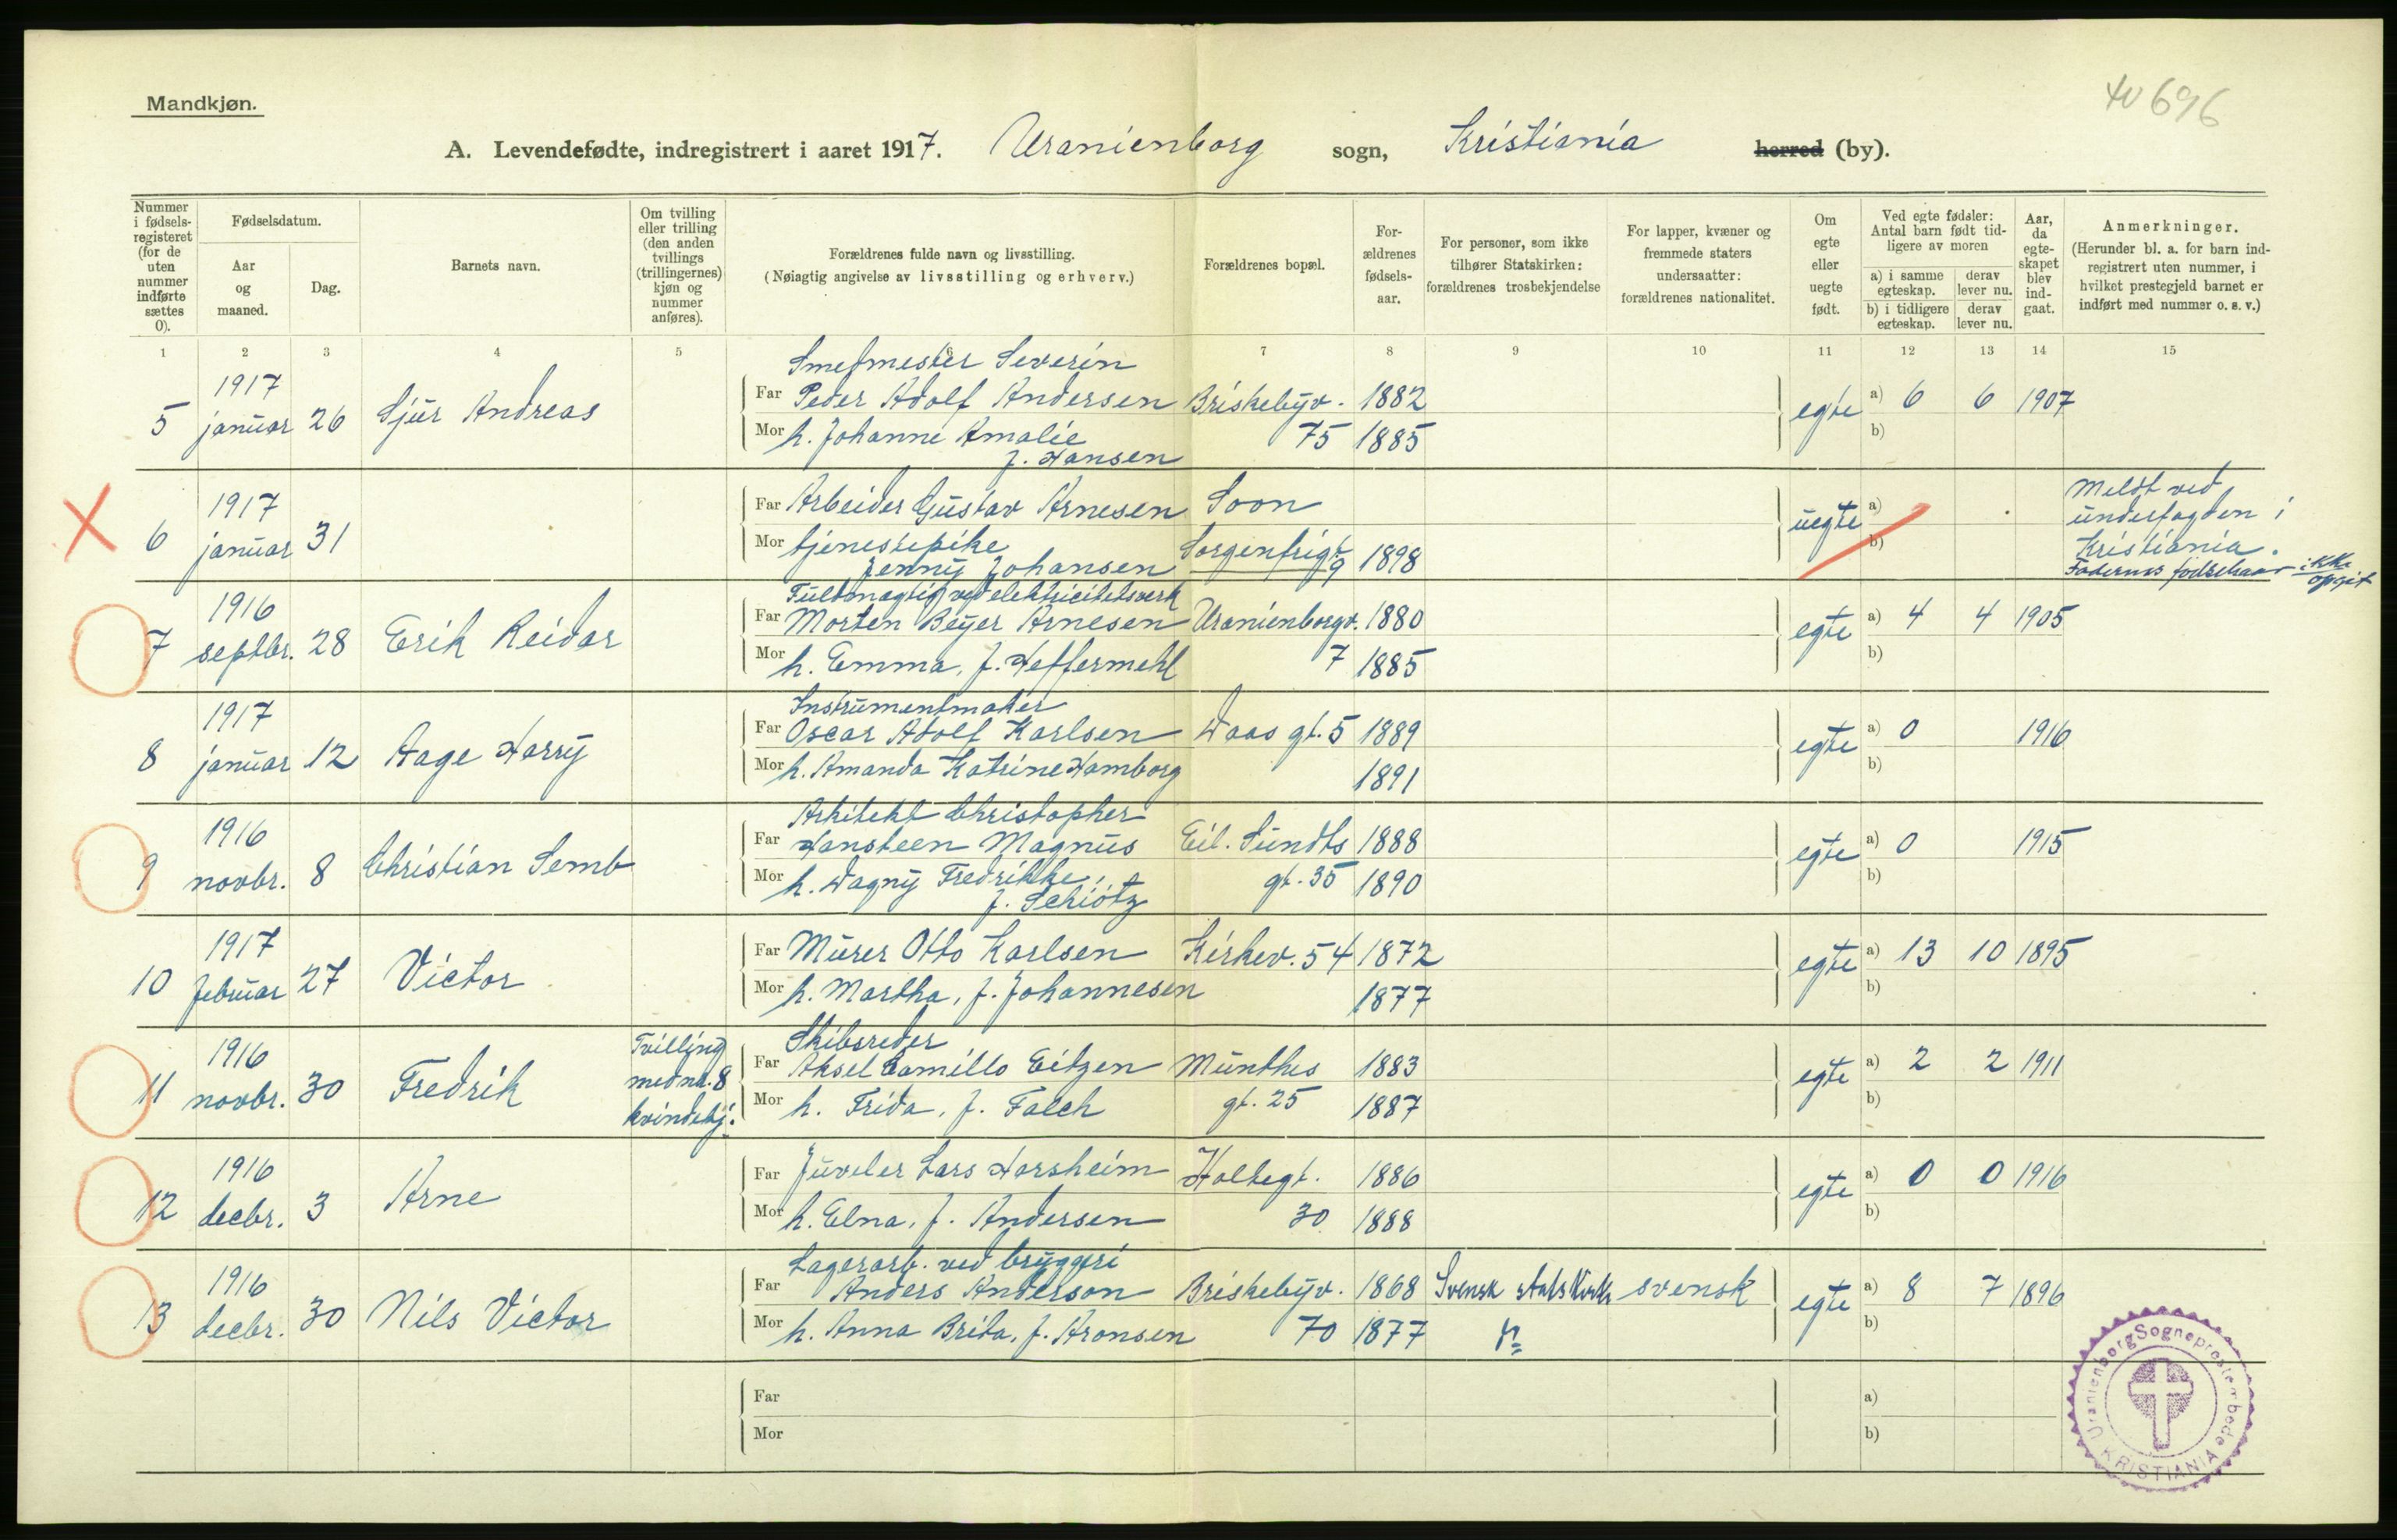 Mandkjøn.
40696
A. Levendefødte, indregistrert i aaret 1917. Uranienborg sogn, Kristiania herred (by).
Nummer i fødselsregisteret (for de uten nummer indførte sættes 0).
Fødselsdatum.
Aar og maaned.
Dag.
Barnets navn.
Om tvilling eller trilling (den anden tvillings (trillingernes) kjøn og nummer anføres).
Forældrenes fulde navn og livsstilling.
(Nøiagtig angivelse av livsstilling og erhverv.)
Forældrenes bopæl.
Forældrenes fødselsaar.
For personer, som ikke tilhører Statskirken: forældrenes trosbekjendelse
For lapper, kvæner og fremmede staters undersaatter: forældrenes nationalitet.
Om egte eller uegte født.
Ved egte fødsler: Antal barn født tidligere av moren
a) i samme egteskap. derav lever nu.
b) i tidligere egteskap. derav lever nu.
Aar, da egteskapet blev indgaat.
Anmerkninger.
(Herunder bl. a. for barn indregistrert uten nummer, i hvilket prestegjeld barnet er indført med nummer o. s. v.)
1 2 3 4 5 6 7 8 9 10 11 12 13 14 15
1917 Smedmester Severin
5 januar 26 Sjur Andreas Far Peder Adolf Andersen Briskebyv. 1882 egte a) 6 6 1907
Mor h. Johanne Amalie 75 1885 b)
f. Hansen
1917 Far Arbeider Gustav Arnesen Soon uegte a) Meldt ved
6 januar 31 Mor tjenestepike Sorgenfrigt. 9 1898 b) underfogden i
Jenny Johansen Kristiania.
Faderens fødselsaar ikke opgit
1916 Fuldmægtig ved elektricitetsverk
7 septbr. 28 Erik Reidar Far Morten Beyer Arnesen Uranienborgv. 1880 egte a) 4 4 1905
Mor h. Emma, f. Heffermehl 7 1885 b)
1917 Instrumentmaker
8 januar 12 Aage Harry Far Oscar Adolf Karlsen Daas gt. 5 1889 egte a) 0 1916
Mor h. Amanda Katrine Hamborg 1891 b)
1916 Arkitekt Christopher
9 novbr. 8 Christian Semb Far Hansteen Magnus Eil. Sundts 1888 egte a) 0 1915
Mor h. Dagny Fredrikke, gt. 35 1890 b)
f. Schiötz
1917
10 februar 27 Victor Far Murer Otto Karlsen Kirkev. 54 1872 egte a) 13 10 1895
Mor h. Martha, f. Johannesen 1877 b)
1916 Tvilling Skibsreder
11 novbr. 30 Fredrik med nr. 8 Far Aksel Camillo Eitzen Munthes 1883 egte a) 2 2 1911
kvindekj. Mor h. Frida, f. Falch gt. 25 1887 b)
1916
12 decbr. 3 Arne Far Juveler Lars Harsheim Holtegt. 1886 egte a) 0 0 1916
Mor h. Elna, f. Andersen 30 1888 b)
1916 Lagerarb. ved bryggeri
13 decbr. 30 Nils Victor Far Anders Anderson Briskebyv. 1868 Svensk statskirke svensk egte a) 8 7 1896
Mor h. Anna Brita, f. Aronsen 70 1877 b)
Far a)
Mor b)
Uranienborg Sogneprestembede KRISTIANIA